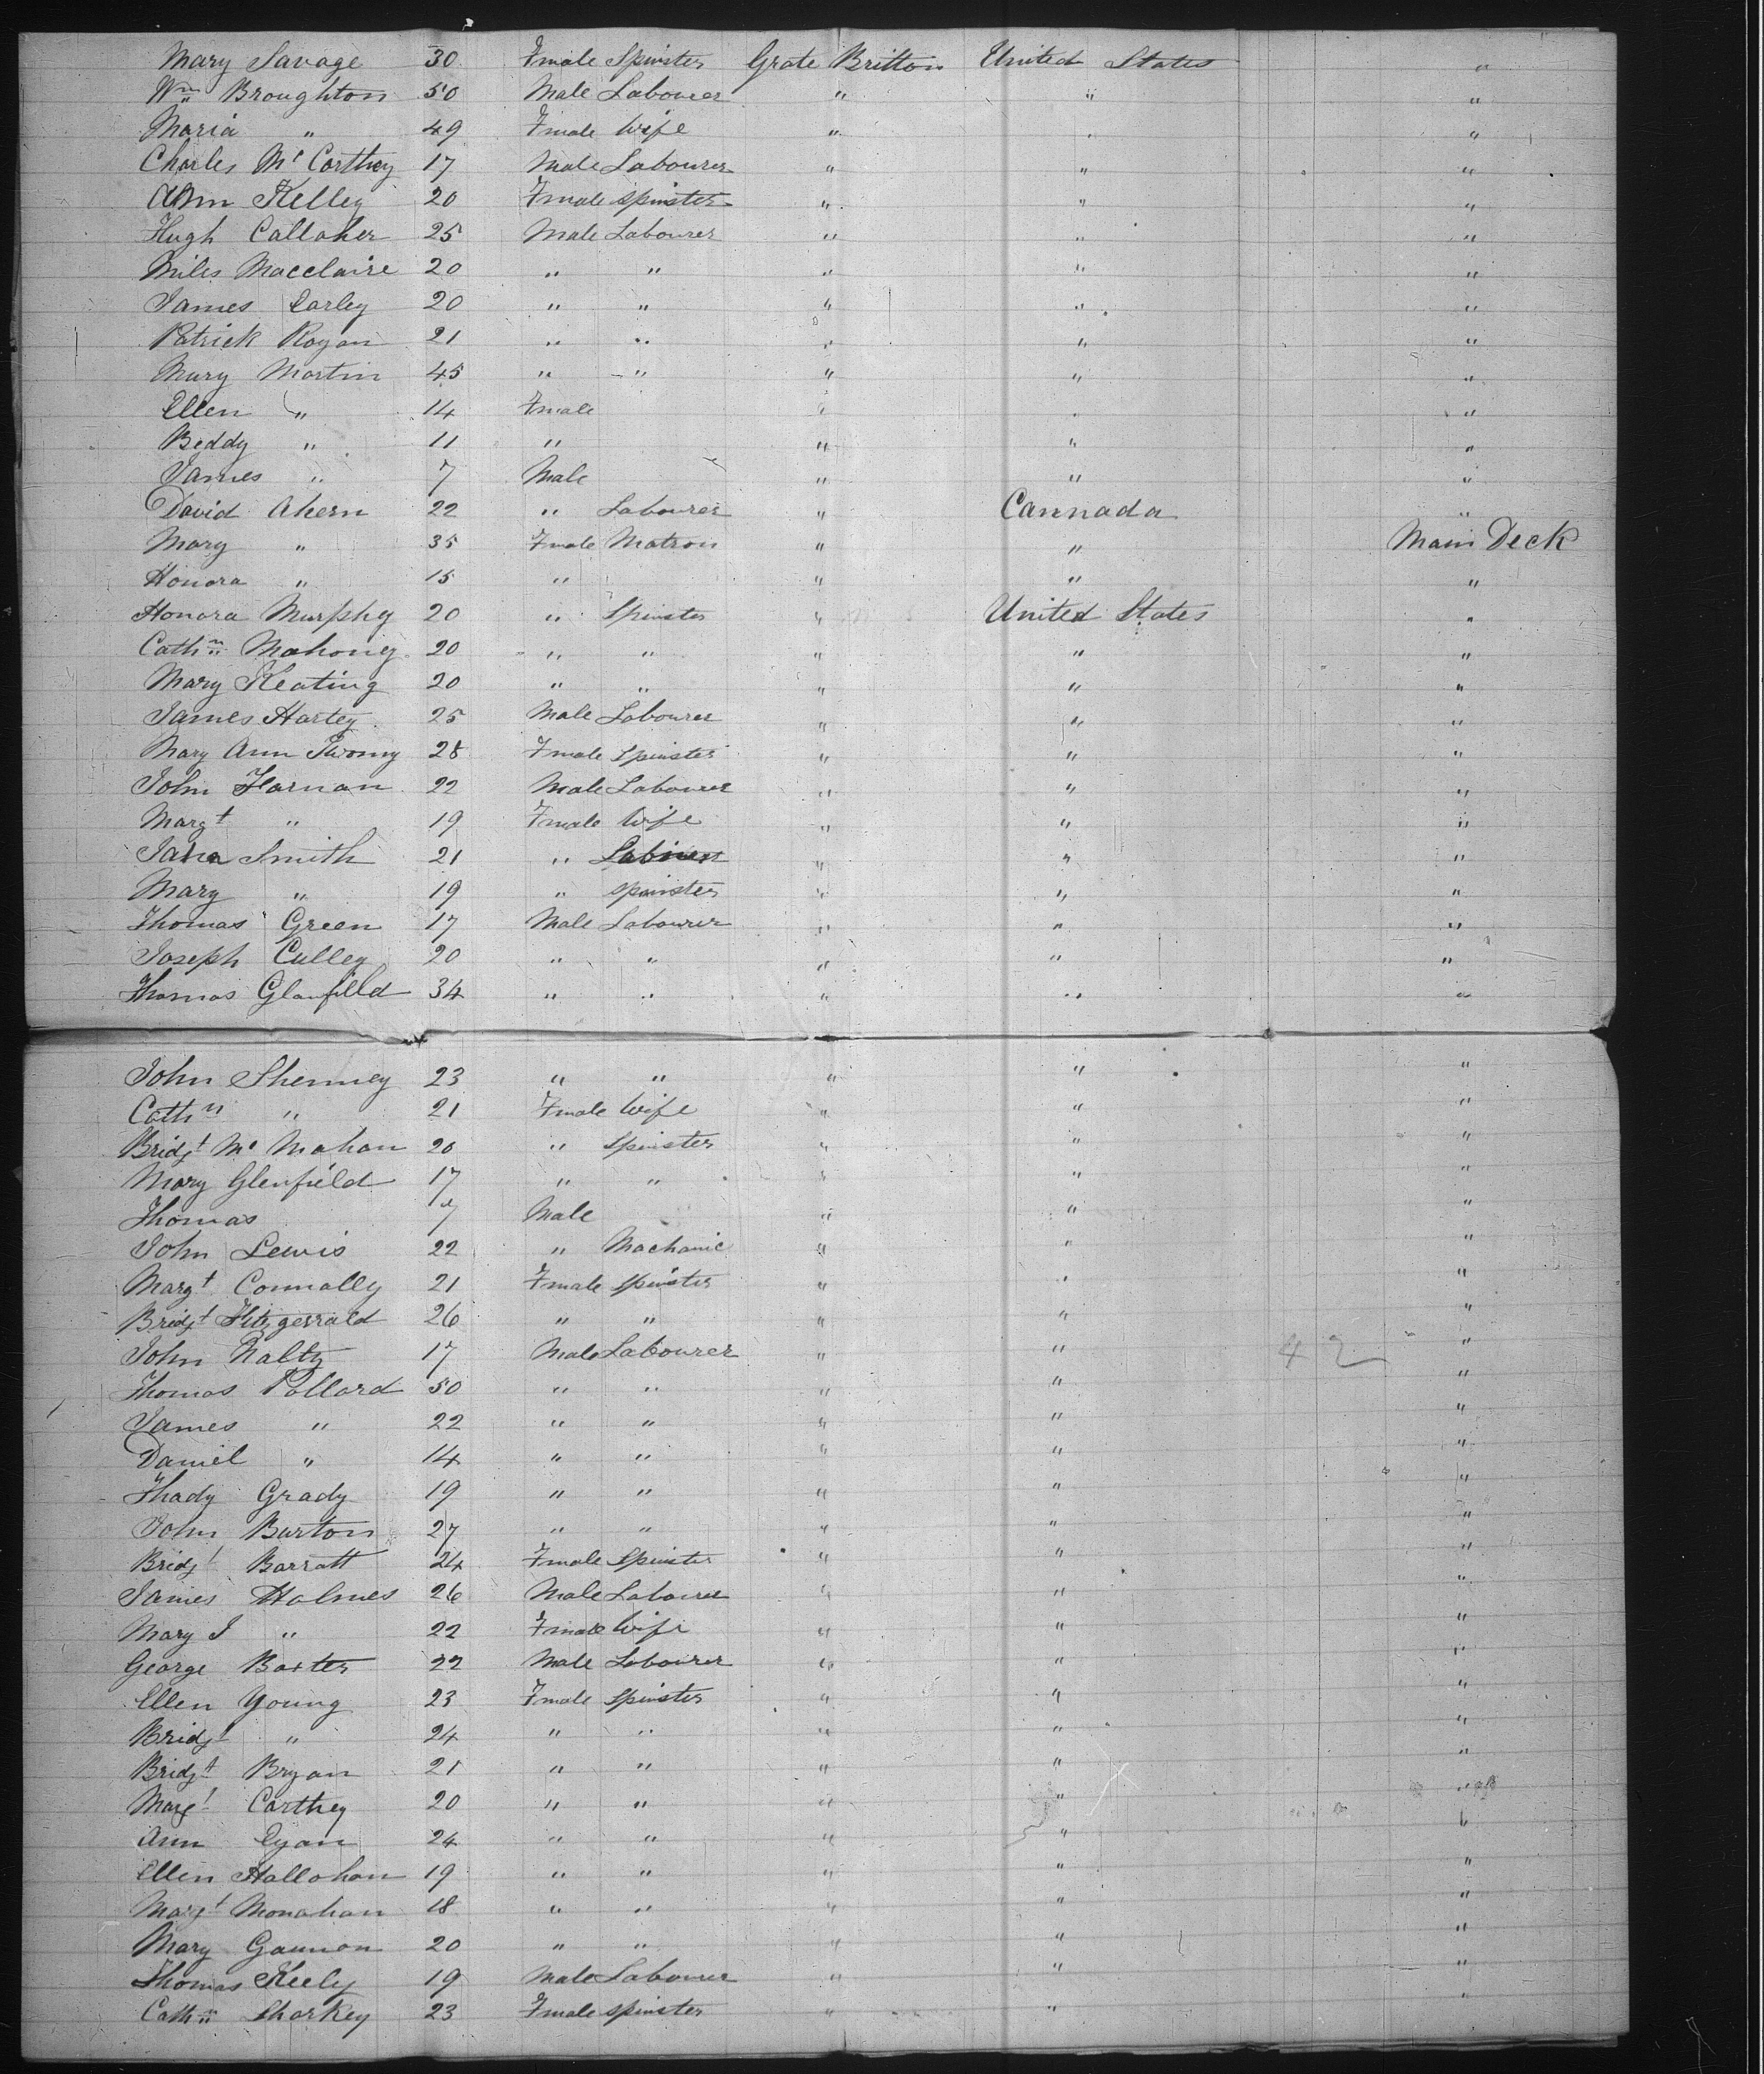 Mary Savage 30 Fmale Spinster Grate Britton United States "
Wm Broughton 50 Male Labourer " " "
Maria " 49 Fmale Wife " " "
Charles Mc Carthey 17 Male Labourer " " "
Ann Kelley 20 Fmale Spinster " " "
Hugh Callaher 25 Male Labourer " " "
Miles Macclaire 20 " " " " "
James Carley 20 " " " " "
Patrick Rogan 21 " " " " "
Mary Martin 45 " " " " "
Ellen " 14 Fmale " " "
Biddy " 11 " " " "
James " 7 Male " " "
David Ahern 22 " Labourer " Cannada "
Mary " 35 Fmale Matron " " Main Deck
Honora " 15 " " " "
Honora Murphy 20 " Spinster " United States "
Cathn Mahoney 20 " " " " "
Mary Keating 20 " " " " "
James Hartey 25 Male Labourer " " "
Mary Ann Twomy 28 Fmale Spinster " " "
John Harnan 22 Male Labourer " " "
Margt " 19 Fmale Wife " " "
Smith 21 " " " "
Mary " 19 " Spinster " " "
Thomas Green 17 Male Labourer " " "
Joseph Culley 20 " " " " "
Thomas Glanfilld 34 " " " " "
John Shenney 23 " " " " "
Cathn " 21 Fmale Wife " " "
Bridgt Mc Mahan 20 " Spinster " " "
Mary Glenfield 17 " " " " "
Thomas 7 Male " " "
John Lewis 22 " Machanic " " "
Margt Connally 21 Fmale Spinster " " "
Bridgt Fitzgerrald 26 " " " " "
John Nalty 17 Male Labourer " " 42 "
Thomas Pollard 50 " " " " "
James " 22 " " " " "
Daniel " 14 " " " " "
Thady Grady 19 " " " " "
John Burton 27 " " " " "
Bridgt Barratt 24 Fmale Spinster " " "
James Holmes 26 Male Labourer " " "
Mary J " 22 Fmale Wife " " "
George Baxter 22 Male Labourer " " "
Ellen Young 23 Fmale Spinster " " "
Bridgt " 24 " " " " "
Bridgt Bryan 21 " " " " "
Margt Carthey 20 " " " " "
Ann Cyan 24 " " " " "
Ellen Hallohan 19 " " " " "
Margt Monahan 18 " " " " "
Mary Gannon 20 " " " " "
Thomas Keely 19 Male Labourer " " "
Cathn Sharkey 23 Fmale Spinster " " "